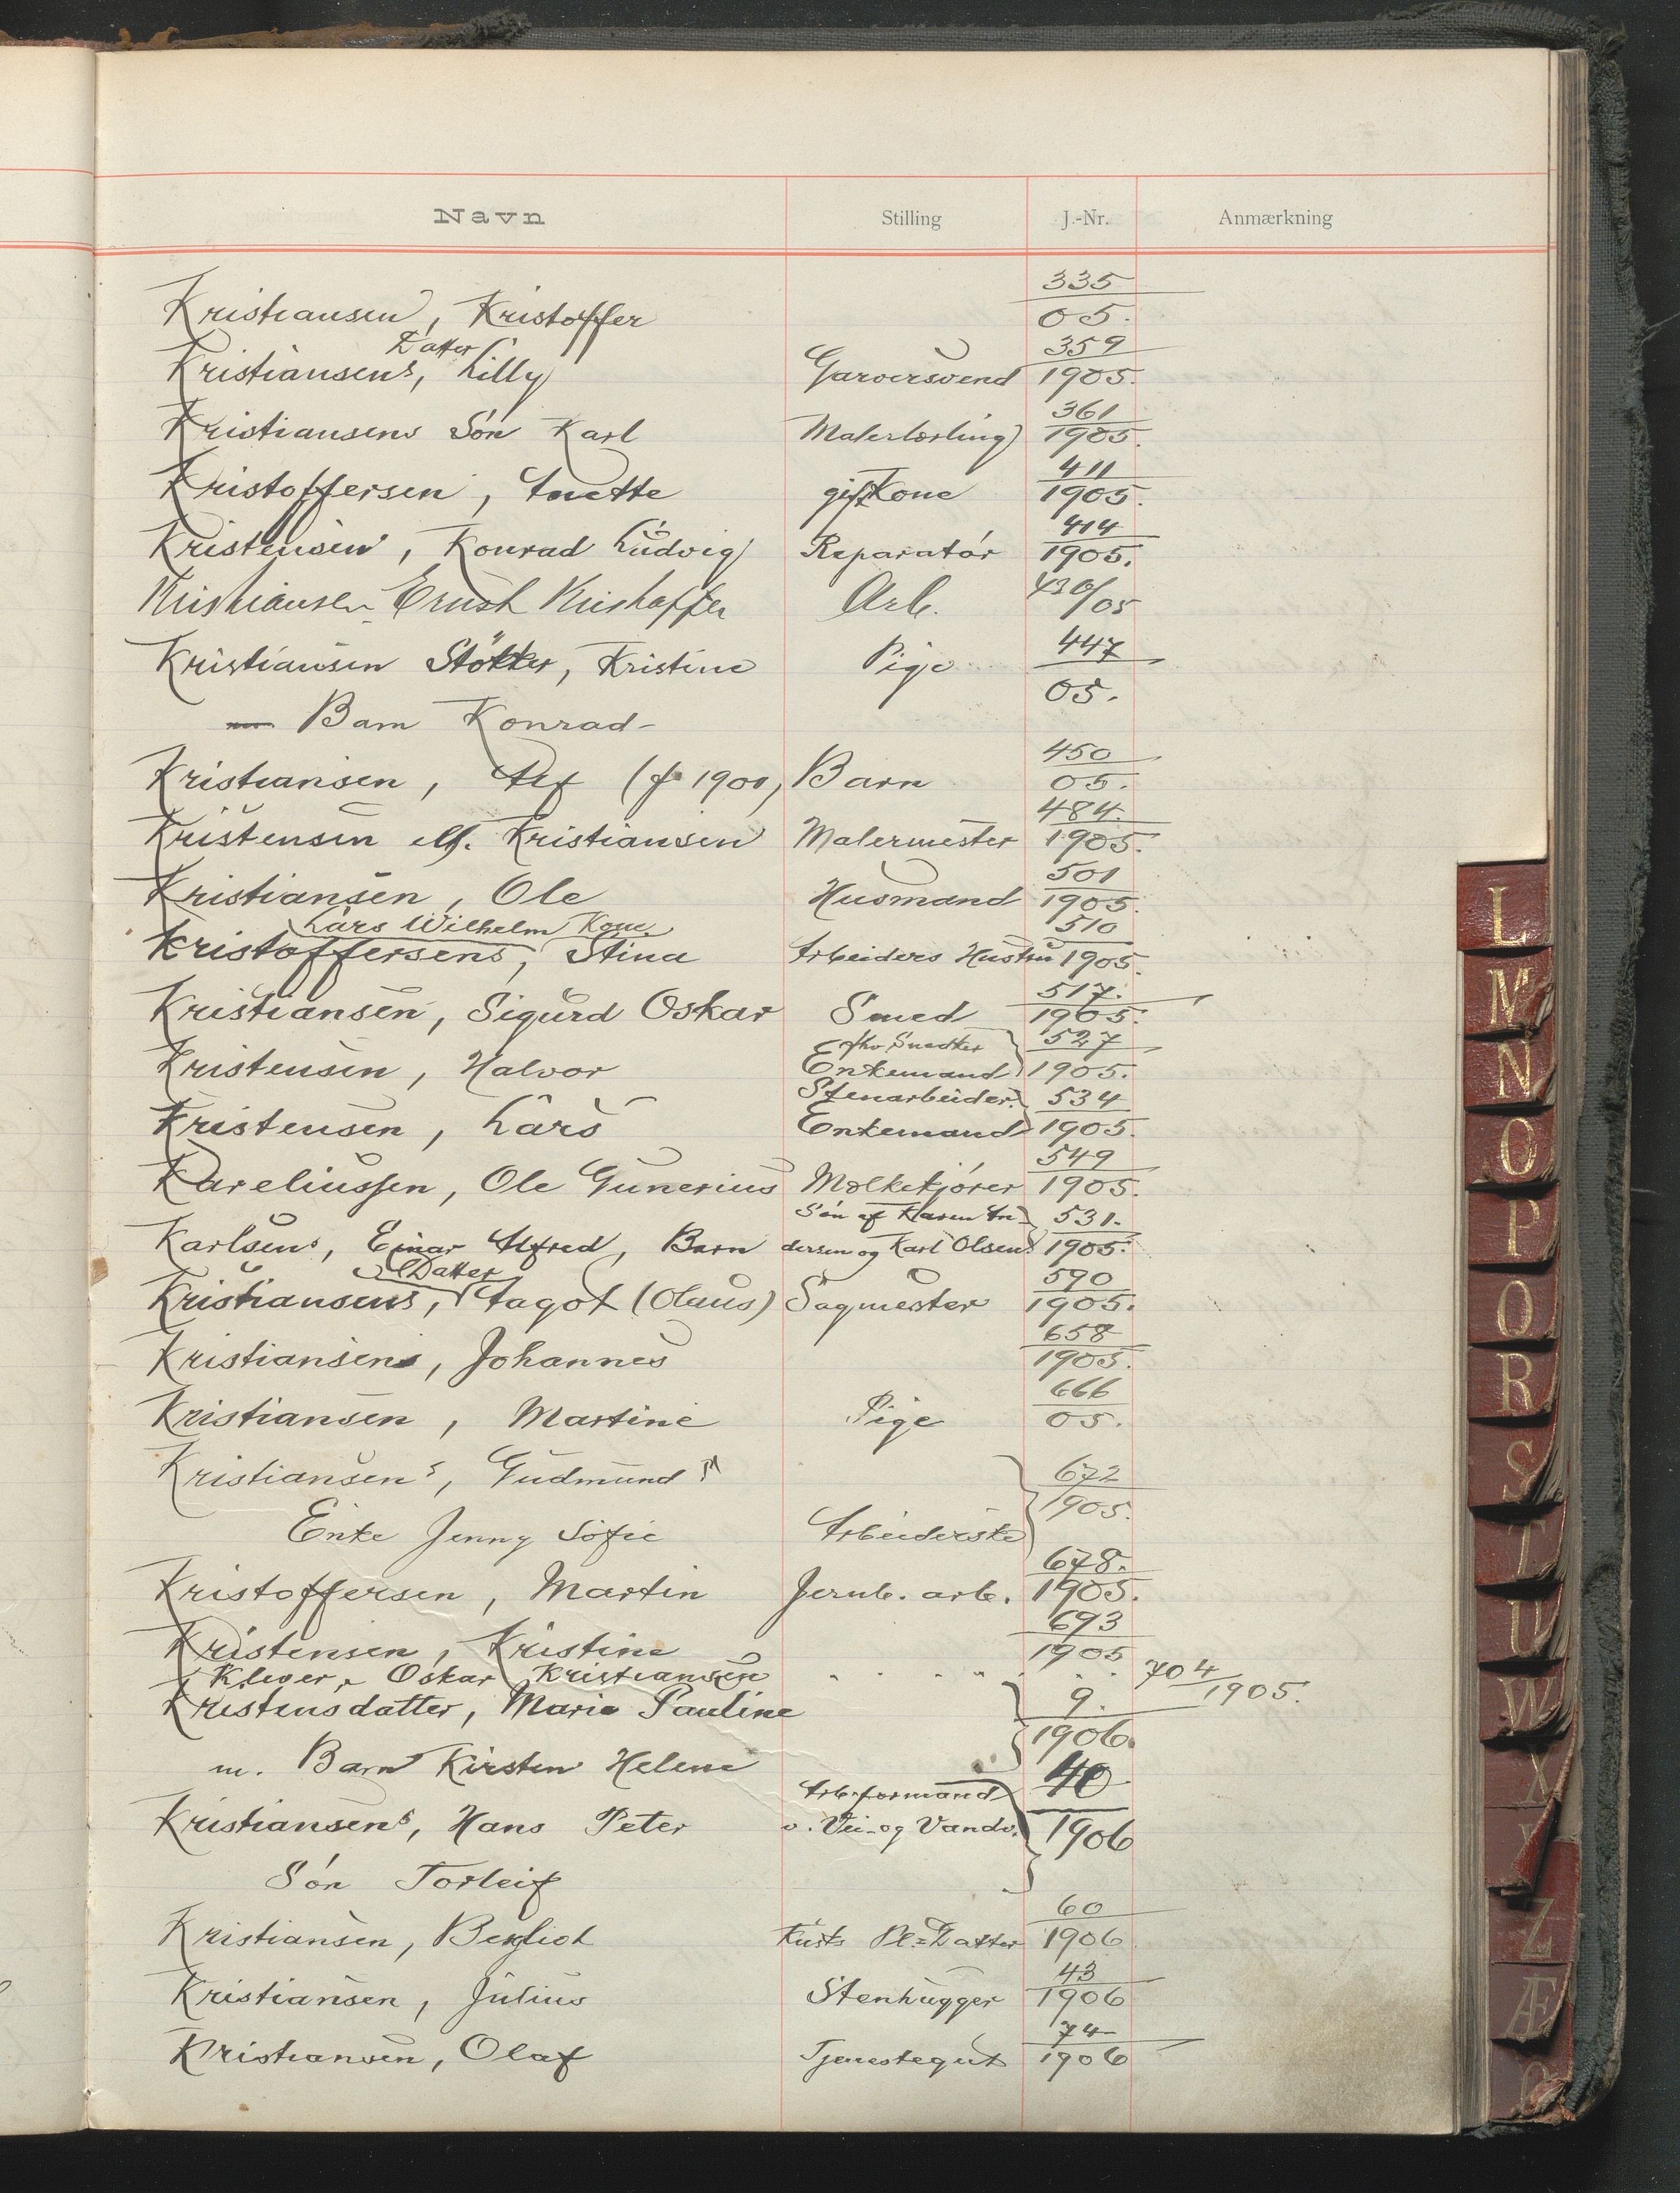 Navn Stilling J.-Nr. Anmærkning
335
Kristiansen, Kristoffer 05.
Datter 359
Kristiansens, Lilly Garversvend 1905.
361
Kristiansens Søn Karl Malerlærling 1905.
411
Kristoffersen, Anette gift Kone 1905.
414
Kristensen, Konrad Ludvig Reparatør 1905.
Kristiansen Ernst Kristoffer Arb. 430/05
Kristiansen Stötter, Kristine Pige 447
05.
— Barn Konrad
450
Kristiansen, Alf (f 1900) Barn 05.
484.
Kristensen ell. Kristiansen Malermester 1905.
501
Kristiansen, Ole Husmand 1905.
Lars Wilhelm Kone 510
Kristoffersens, Stina Arbeiders Hustru 1905.
517.
Kristiansen, Sigurd Oskar Smed 1905.
fhv Snedker 527
Kristensen, Halvor Enkemand 1905.
Stenarbeider. 534
Kristensen, Lars Enkemand 1905.
549
Kareliussen, Ole Gunerius Mælkekjører 1905.
Søn af Karen An- 531.
Karlsens, Einar Alfred, Barn dersen og Karl Olsen 1905.
Datter 590
Kristiansens, Aagot (Olaus) Sagmester 1905.
658
Kristiansens, Johannes 1905.
666
Kristiansen, Martine Pige 05.
Kristiansens, Gudmund 672
1905.
Enke Jenny Sofie Arbeiderske
678.
Kristoffersen, Martin Jernb. arb. 1905.
693
Kristensen, Kristine 1905
Kleger, Oskar Kristiansen " " " " " " 704
1905.
Kristensdatter, Marie Pauline 9.
1906.
m. Barn Kirsten Helene
Arb. formand 40
Kristiansens, Hans Peter v. Vei- og Vandv. 1906
Søn Torleif
60
Kristiansen, Bergliot Kusts Pl=Datter 1906
43
Kristiansen, Julius Stenhugger 1906
74
Kristiansen, Olaf Tjenestegut 1906
L
M
N
O
P
Q
R
S
T
U
W
X
Y
Z
Æ
Ø